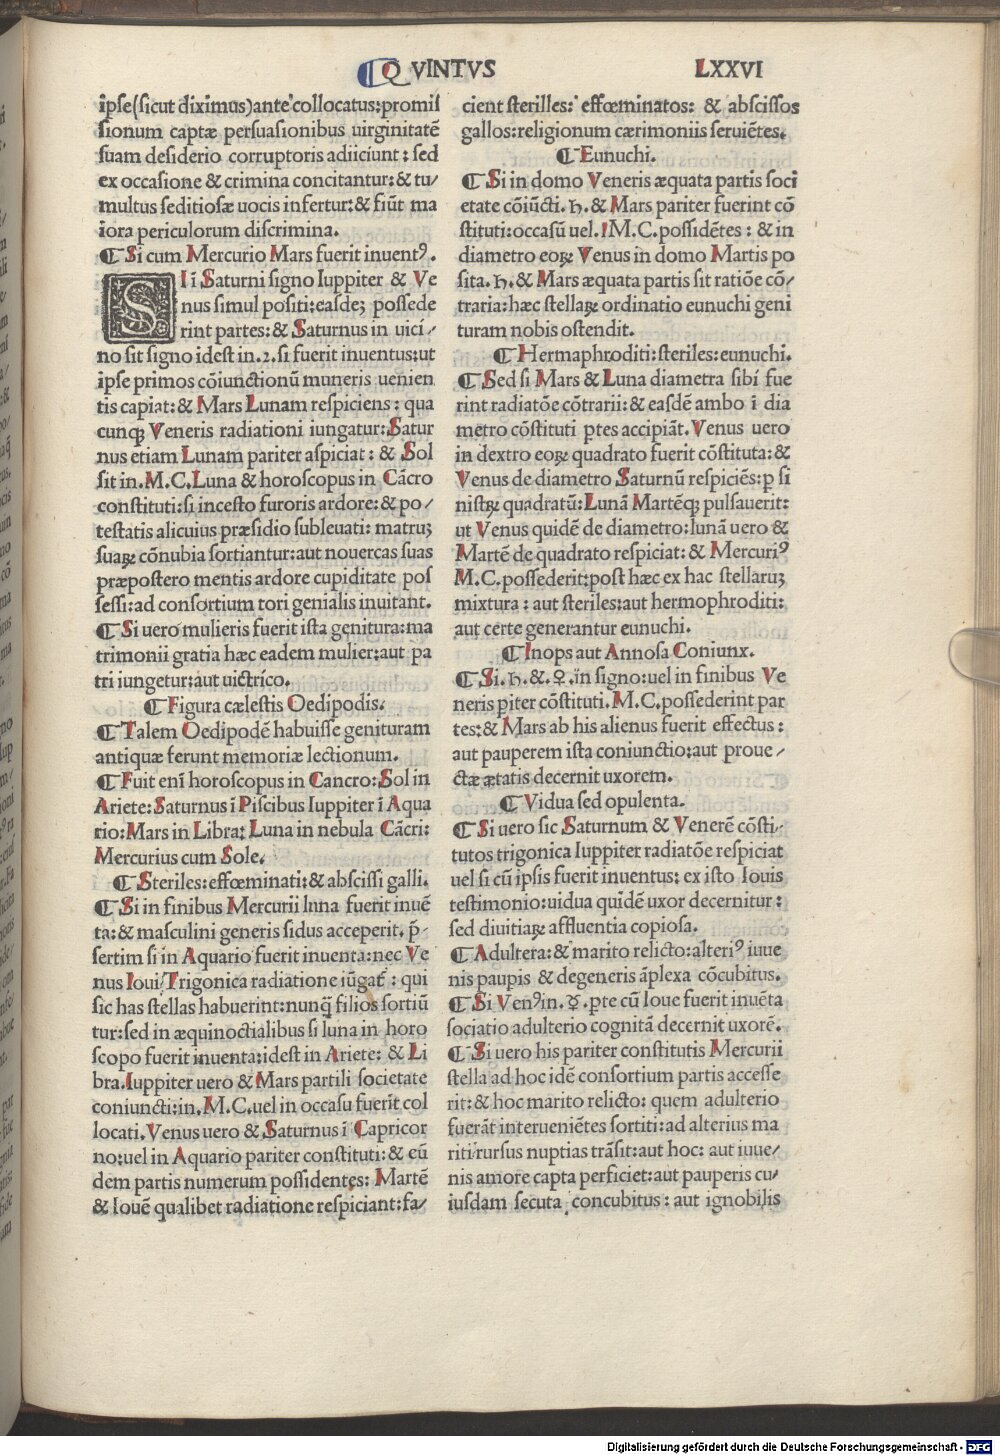 QVINTVS LXXVI
ipſe(ſicut diximus)ante collocatus:promiſ
ſionum captæ perſuaſionibus uirginitatē
ſuam deſiderio corruptoris adiiciunt: ſed
ex occaſione & crimina concitantur:& tu/
multus ſeditioſæ uocis infertur:& fiūt ma
iora periculorum diſcrimina.
¶ Si cum Mercurio Mars fuerit inuentꝰ.
SI ī Saturni ſigno Iuppiter & Ve
nus ſimul poſiti:eaſdeꝫ poſſede
rint partes:& Saturnus in uici/
no ſit ſigno ideſt in.2.ſi fuerit inuentus:ut
ipſe primos cōiunctionū muneris uenien
tis capiat:& Mars Lunam reſpiciens: qua
cunqꝫ Veneris radiationi iungatur:Satur
nus etiam Lunam pariter aſpiciat: & Sol
ſit in.M.C.Luna & horoſcopus in Cācro
conſtituti:ſi inceſto furoris ardore:& po/
teſtatis alicuius præſidio ſubleuati: matruꝫ
ſuaꝝ cōnubia ſortiantur:aut nouercas ſuas
præpoſtero mentis ardore cupiditate poſ
ſeſſi:ad conſortium tori genialis inuitant.
¶ Si uero mulieris fuerit iſta genitura:ma
trimonii gratia hæc eadem mulier:aut pa
tri iungetur:aut uictrico.
¶ Figura cæleſtis Oedipodis.
¶ Talem Oedipodē habuiſſe genituram
antiquæ ferunt memoriæ lectionum.
¶ Fuit enī horoſcopus in Cancro:Sol in
Ariete:Saturnus ī Piſcibus Iuppiter ī Aqua
rio:Mars in Libra:Luna in nebula Cācri:
Mercurius cum Sole.
¶ Steriles:effœminati:& abſciſſi galli.
¶ Si in finibus Mercurii luna fuerit inuē
ta:& maſculini generis ſidus acceperit. p̄/
ſertim ſi in Aquario fuerit inuenta:nec Ve
nus Ioui Trigonica radiatione iūgat᷑: qui
ſic has ſtellas habuerint:nunq̄ filios ſortiū
tur:ſed in æquinoctialibus ſi luna in horo
ſcopo fuerit inuenta:ideſt in Ariete: & Li
bra.Iuppiter uero & Mars partili ſocietate
coniuncti:in.M.C.uel in occaſu fuerīt col
locati.Venus uero & Saturnus ī Capricor
no:uel in Aquario pariter conſtituti:& eū
dem partis numerum poſſidentes: Martē
& Iouē qualibet radiatione reſpiciant:fa/
cient ſterilles: effœminatos: & abſciſſos
gallos:religionum cærimoniis ſeruiētes.
¶ Eunuchi.
¶ Si in domo Veneris æquata partis ſoci
etate cōiūcti.♄.& Mars pariter fuerint cō
ſtituti:occaſū uel.M.C.poſſidētes: & in
diametro eoꝝ Venus in domo Martis po
ſita.♄.& Mars æquata partis ſit ratiōe cō/
traria:hæc ſtellaꝝ ordinatio eunuchi geni
turam nobis oſtendit.
¶ Hermaphroditi:ſteriles:eunuchi.
¶ Sed ſi Mars & Luna diametra ſibi fue
rint radiatōe cōtrarii:& eaſdē ambo ī dia
metro cōſtituti ꝑtes accipiāt.Venus uero
in dextro eoꝝ quadrato fuerit cōſtituta:&
Venus de diametro Saturnū reſpiciēs:ꝑ ſi
niſtꝝ quadratū:Lunā Martēqꝫ pulſauerit:
ut Venus quidē de diametro:lunā uero &
Martē de quadrato reſpiciat:& Mercuriꝰ
M.C.poſſederit:poſt hæc ex hac ſtellaruꝫ
mixtura: aut ſteriles:aut hermophroditi:
aut certe generantur eunuchi.
¶ Inops aut Annoſa Coniunx.
¶ Si.♄.&.♀.in ſigno:uel in finibus Ve
neris piter cōſtituti.M.C.poſſederint par
tes:& Mars ab his alienus fuerit effectus:
aut pauperem iſta coniunctio:aut proue/
ctæ ætatis decernit uxorem.
¶ Vidua ſed opulenta.
¶ Si uero ſic Saturnum & Venerē cōſti/
tutos trigonica Iuppiter radiatōe reſpiciat
uel ſi cū ipſis fuerit inuentus: ex iſto Iouis
teſtimonio:uidua quidē uxor decernitur:
ſed diuitiaꝝ affluentia copioſa.
¶ Adultera:& marito relicto:alteriꝰ iuue
nis paupis & degeneris āplexa cōcubitus.
¶ Si Venꝰ in.☿.ꝑte cū Ioue fuerit inuēta
ſociatio adulterio cognitā decernit uxorē.
¶ Si uero his pariter conſtitutis Mercurii
ſtella ad hoc idē conſortium partis acceſſe
rit:& hoc marito relicto: quem adulterio
fuerāt interueniētes ſortiti:ad alterius ma
riti rurſus nuptias trāſit:aut hoc: aut iuue/
nis amore capta perficiet:aut pauperis cu/
iuſdam ſecuta concubitus: aut ignobilis
Digitalisierung gefördert durch die Deutsche Forschungsgemeinschaft - DFG